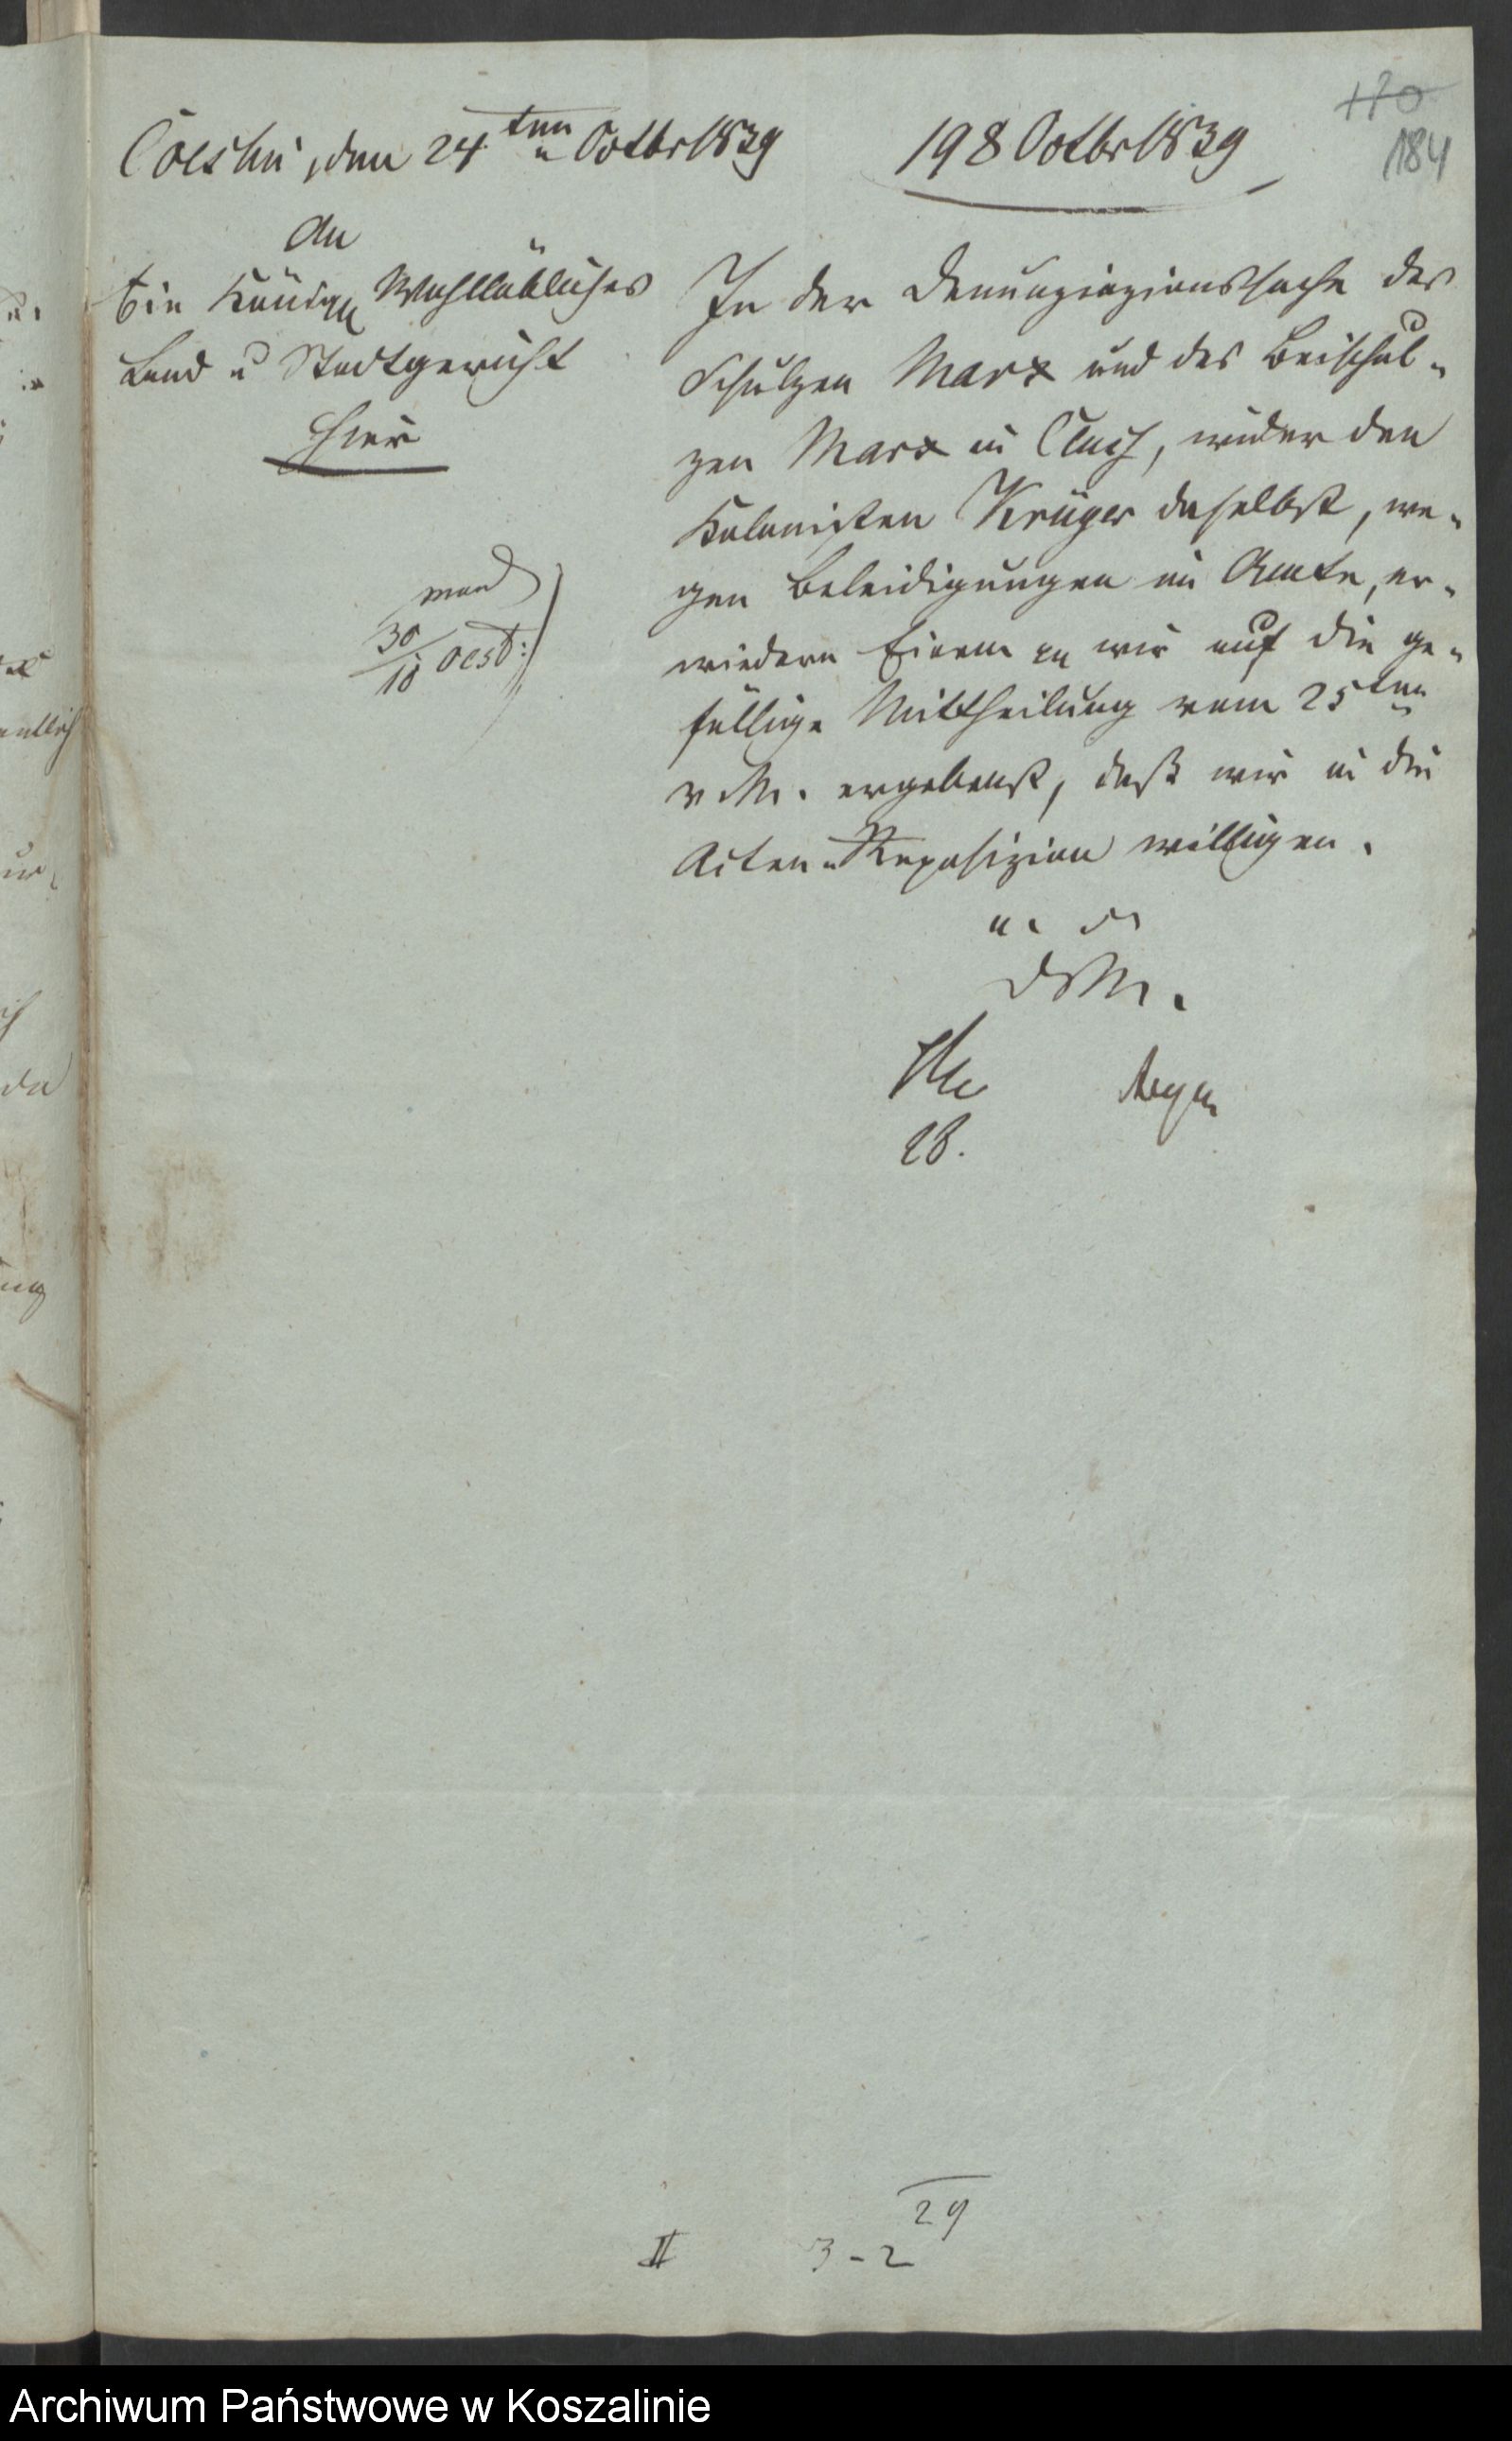 170
184
Coeslin, den 24ten Octbr 1839
198 Octbr 1839
An
Ein Königl Wohllöbliches
Land u Stadtgericht
Hier
mund
30/10 Oest:
In der Denunziazionssache des
Schulzen Marx und des Beischul-
zen Marx in Cluß, wider den
Kolonisten Krüger daselbst, we-
gen Beleidigungen im Amte, er-
wiedern Einem pp wir auf die ge-
fällige Mittheilung vom 25ten
v. M. ergebenst, daß wir in die
Acten-Reposizion willigen.
D M.
28.
29
II 3-2
Archiwum Państwowe w Koszalinie